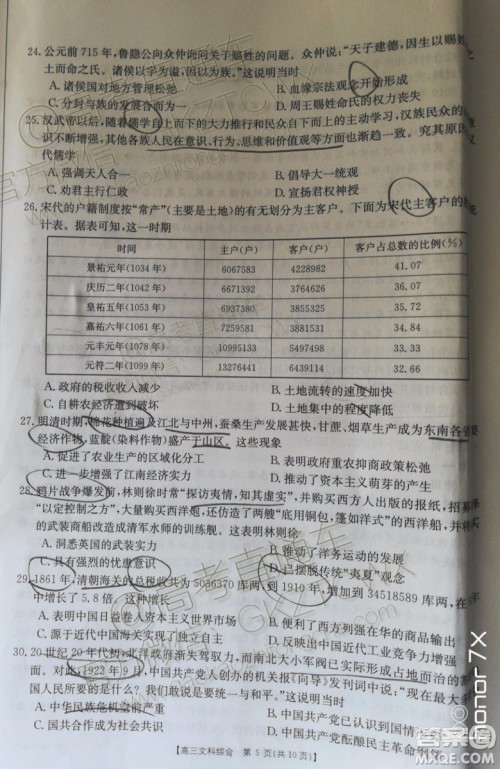 24. 公元前 715 年,鲁隐公向众仲询问关于赐姓的问题。众仲说:“天子建德,因生以赐姓
土而命之氏。诸侯以字为谥,因以为族。”这说明当时
A. 诸侯国对地方管理松弛 B. 血缘宗法观念开始形成
C. 分封与族的发展合二为一 D. 周王赐姓命氏的权力丧失
25. 汉武帝以后,随着儒学自上而下的大力推行和民众自下而上的主动学习,汉族民众的
识不断增强,其他各族人民在意识、行为、思维和价值观等方面也渐趋一致。究其原因
代儒学
A. 强调天人合一 B. 倡导大一统观
C. 劝君主行仁政 D. 宣扬君权神授
26. 宋代的户籍制度按“常产”(主要是土地)的有无划分为主客户。下面为宋代主客户的
计表。据表可知,这一时期
时间 主户(户) 客户(户) 客户占总数的比例(%)
景祐元年(1034 年) 6067583 4228982 41.07
庆历二年(1042 年) 6671392 3764626 36.07
皇祐五年(1053 年) 6937380 3855325 35.72
嘉祐六年(1061 年) 7259581 3881531 34.84
元丰元年(1078 年) 10995133 5497498 33.33
元符二年(1099 年) 13276441 6439114 32.66
A. 政府的税收收入减少 B. 土地流转的速度加快
C. 自耕农经济遭到破坏 D. 土地集中的程度降低
27. 明清时期,棉花种植遍及江北与中州,蚕桑生产发展甚快,甘蔗、烟草生产成为东南各省
经济作物,蓝靛(染料作物)盛产于山区。这些现象
A. 促进了农业生产的区域化分工 B. 表明政府重农抑商政策松弛
C. 进一步增强了江南经济实力 D. 推动了资本主义萌芽的产生
28. 鸦片战争爆发前,林则徐时常“探访夷情,知其虚实”,并购买西方人出版的报纸,招募
“以定控制之方”,大量购买西洋炮,还仿造了两艘“底用铜包,篷如洋式”的西洋船,并将
的武装商船改造成清军水师的训练舰。这表明林则徐
A. 洞悉英国的武装实力 B. 推动了洋务运动的发展
C. 具有强烈的忧患意识 D. 已摆脱传统“夷夏”观念
29. 1861 年,清朝海关的总税收共为 5036370 库两,到 1910 年,增加到 34518589 库两,在
中增长了 5.8 倍。这种增长
A. 表明中国日益卷入资本主义世界市场 B. 便利了西方列强在华的商品输出
C. 源于近代中国海关实现独立自主 D. 反映出中国近代工业竞争力增强
30. 20 世纪 20 年代初,北洋政府渐失驾驭力,而南北大小军阀已实际形成占地而治的
面。对此,1922 年 9 月,中国共产党人创办的机关报《向导》发刊词中说:“现在最大
国人民所要的是什么?我们敢说是要统一与和平。”这说明当时
A. 中华民族危机空前严重 B. 中国共产党已认识到国情
C. 国共合作成为社会共识 D. 中国共产党
高三文科综合 第 5 页(共 10 页)
honor 7X